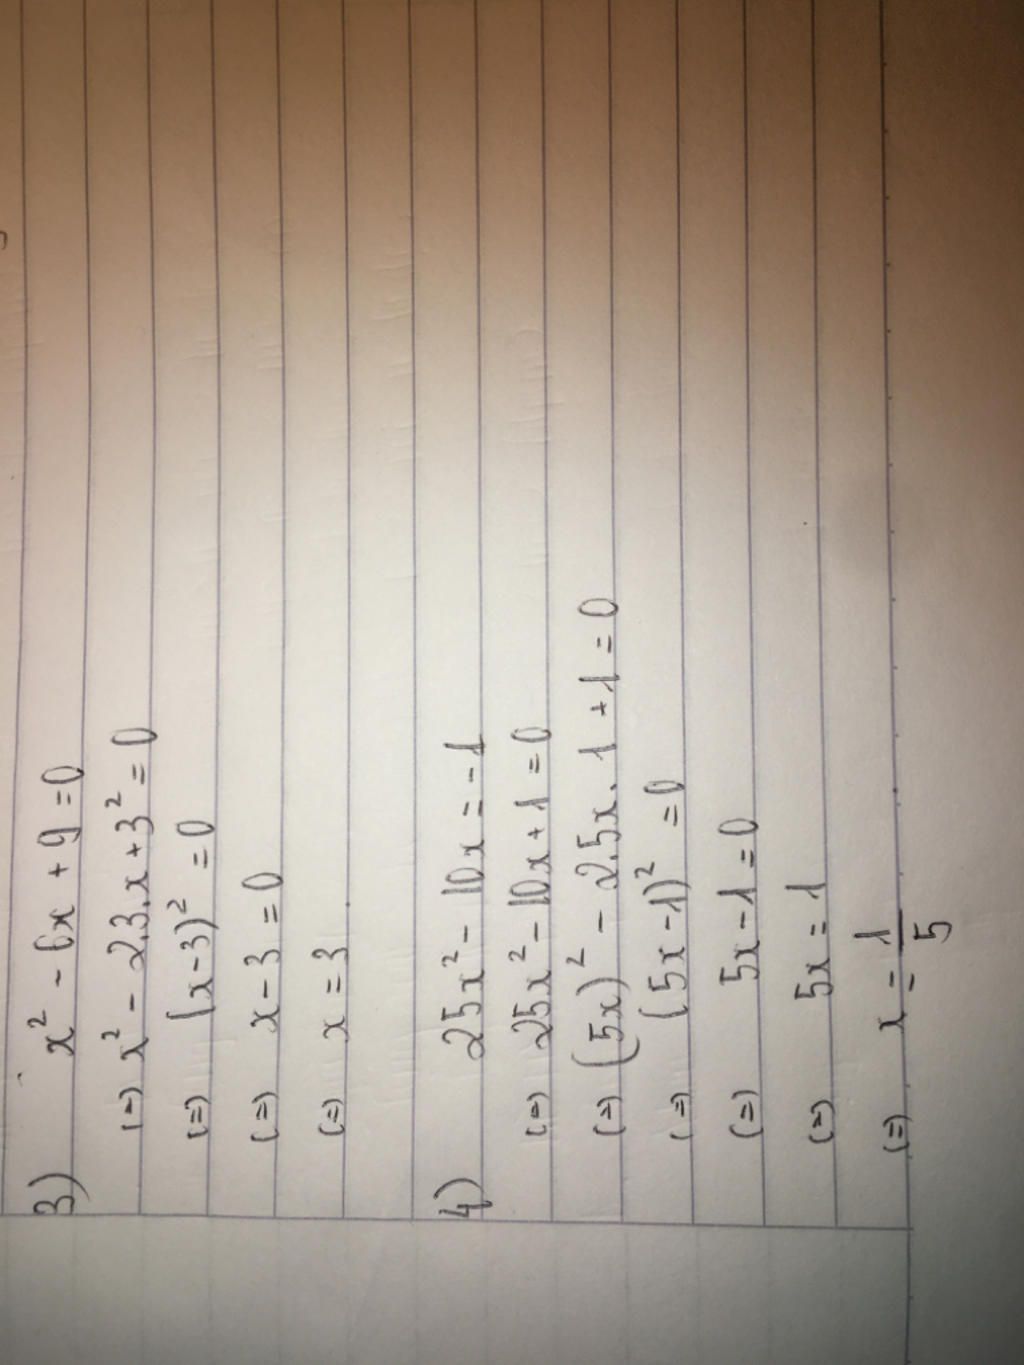 3) x² - 6x + 9 = 0
(=) x² - 2.3.x + 3² = 0
(=) (x-3)² = 0
(=) x - 3 = 0
(=) x = 3
4) 25x² - 10x = -1
(=) 25x² - 10x + 1 = 0
(=) (5x)² - 2.5x.1 + 1 = 0
(=) (5x-1)² = 0
(=) 5x - 1 = 0
(=) 5x = 1
(=) x = 1/5